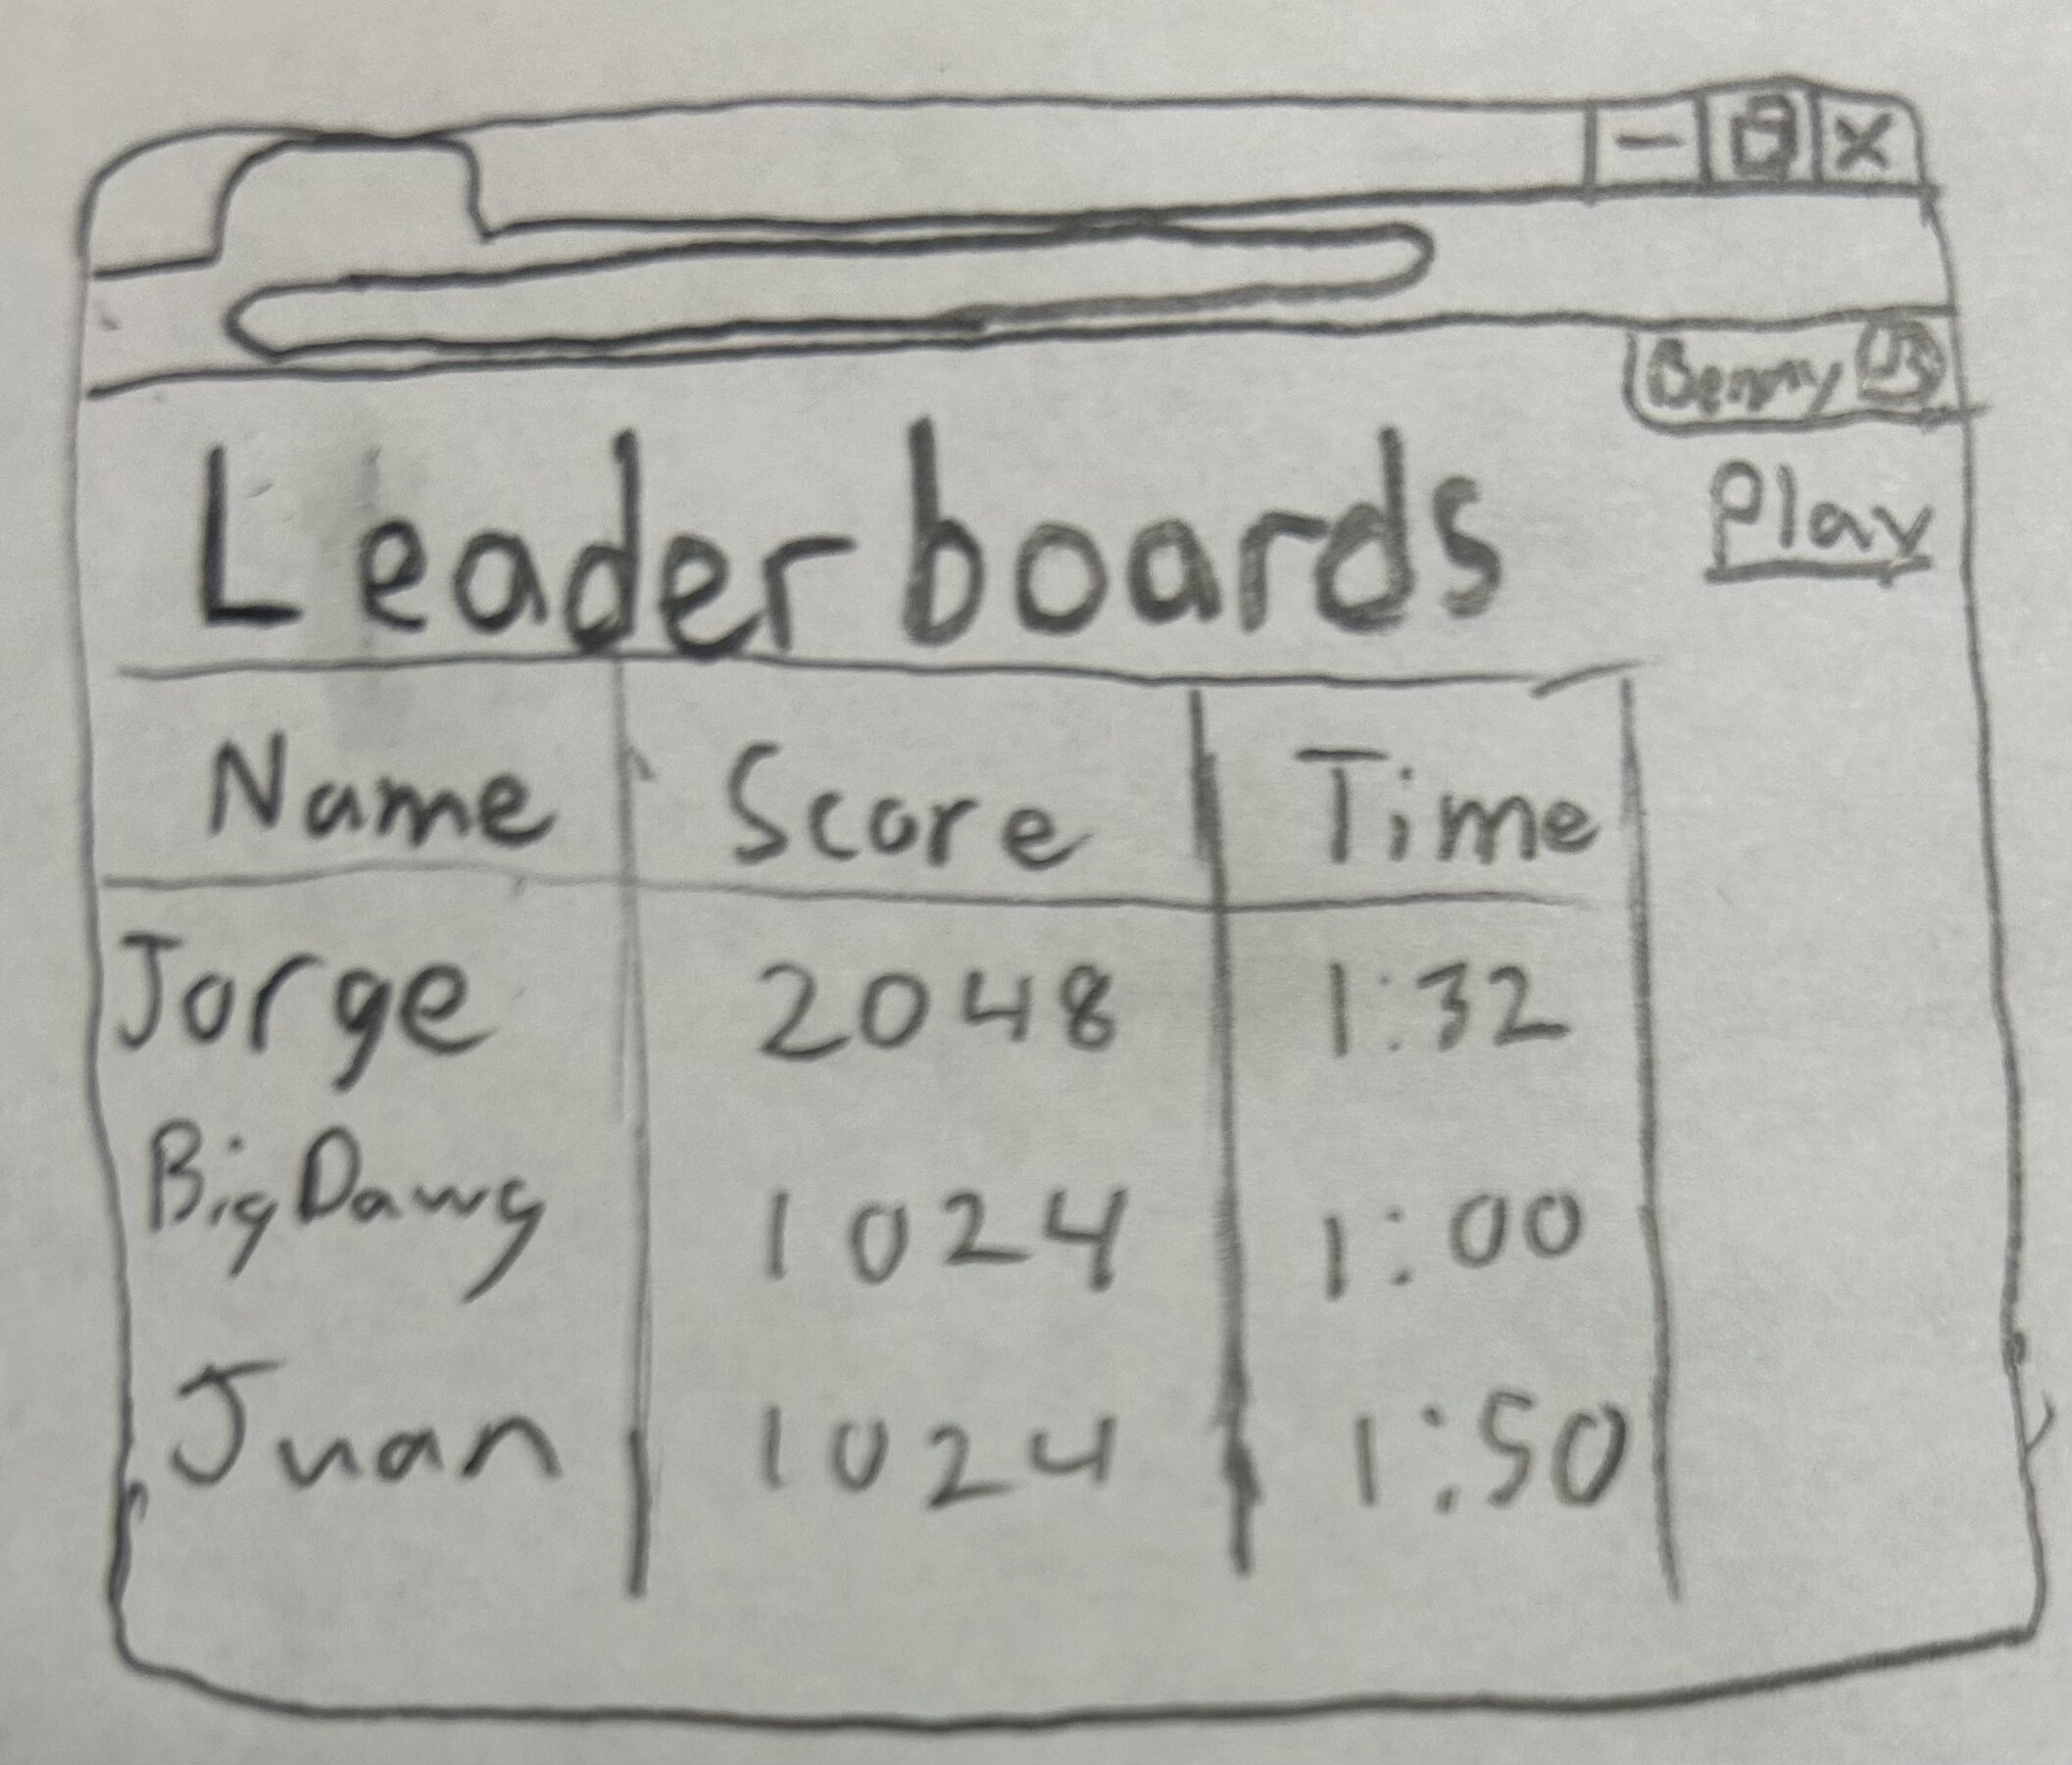 Benny
Leaderboards
Play
Name Score Time
Jorge 2048 1:32
BigDawg 1024 1:00
Juan 1024 1:50